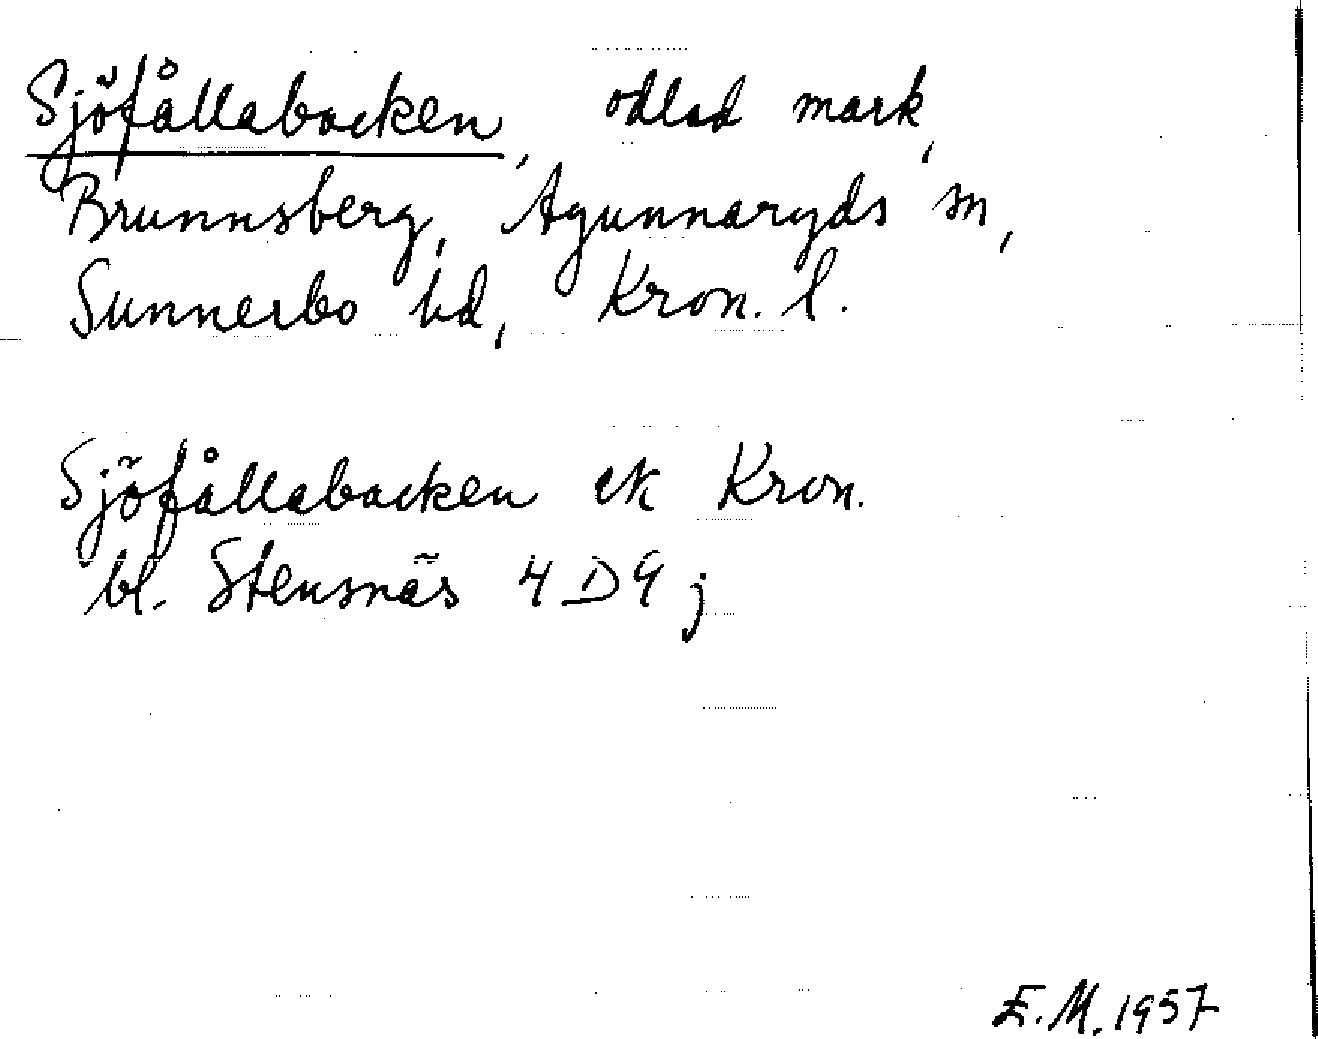 Sjöfållabacken, odlad mark,
Brunnsberg, Agunnaryds sn,
Sunnerbo hd, Kron. l.
Sjöfållabacken ek Kron.
bl. Stensnäs 4D9j
E.M. 1957